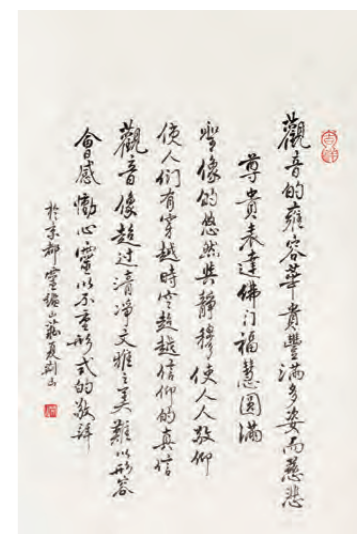 觀音的雍容華貴豐滿多姿而慈悲
尊貴表達佛门福慧圆滿
坐像的悠然與静穆使人人敬仰
使人们有穿越時空超越信仰的真信
觀音像超过清净文雅之美難以形容
會感動心靈以不重形式的敬拜
於京都靈山夏荆山